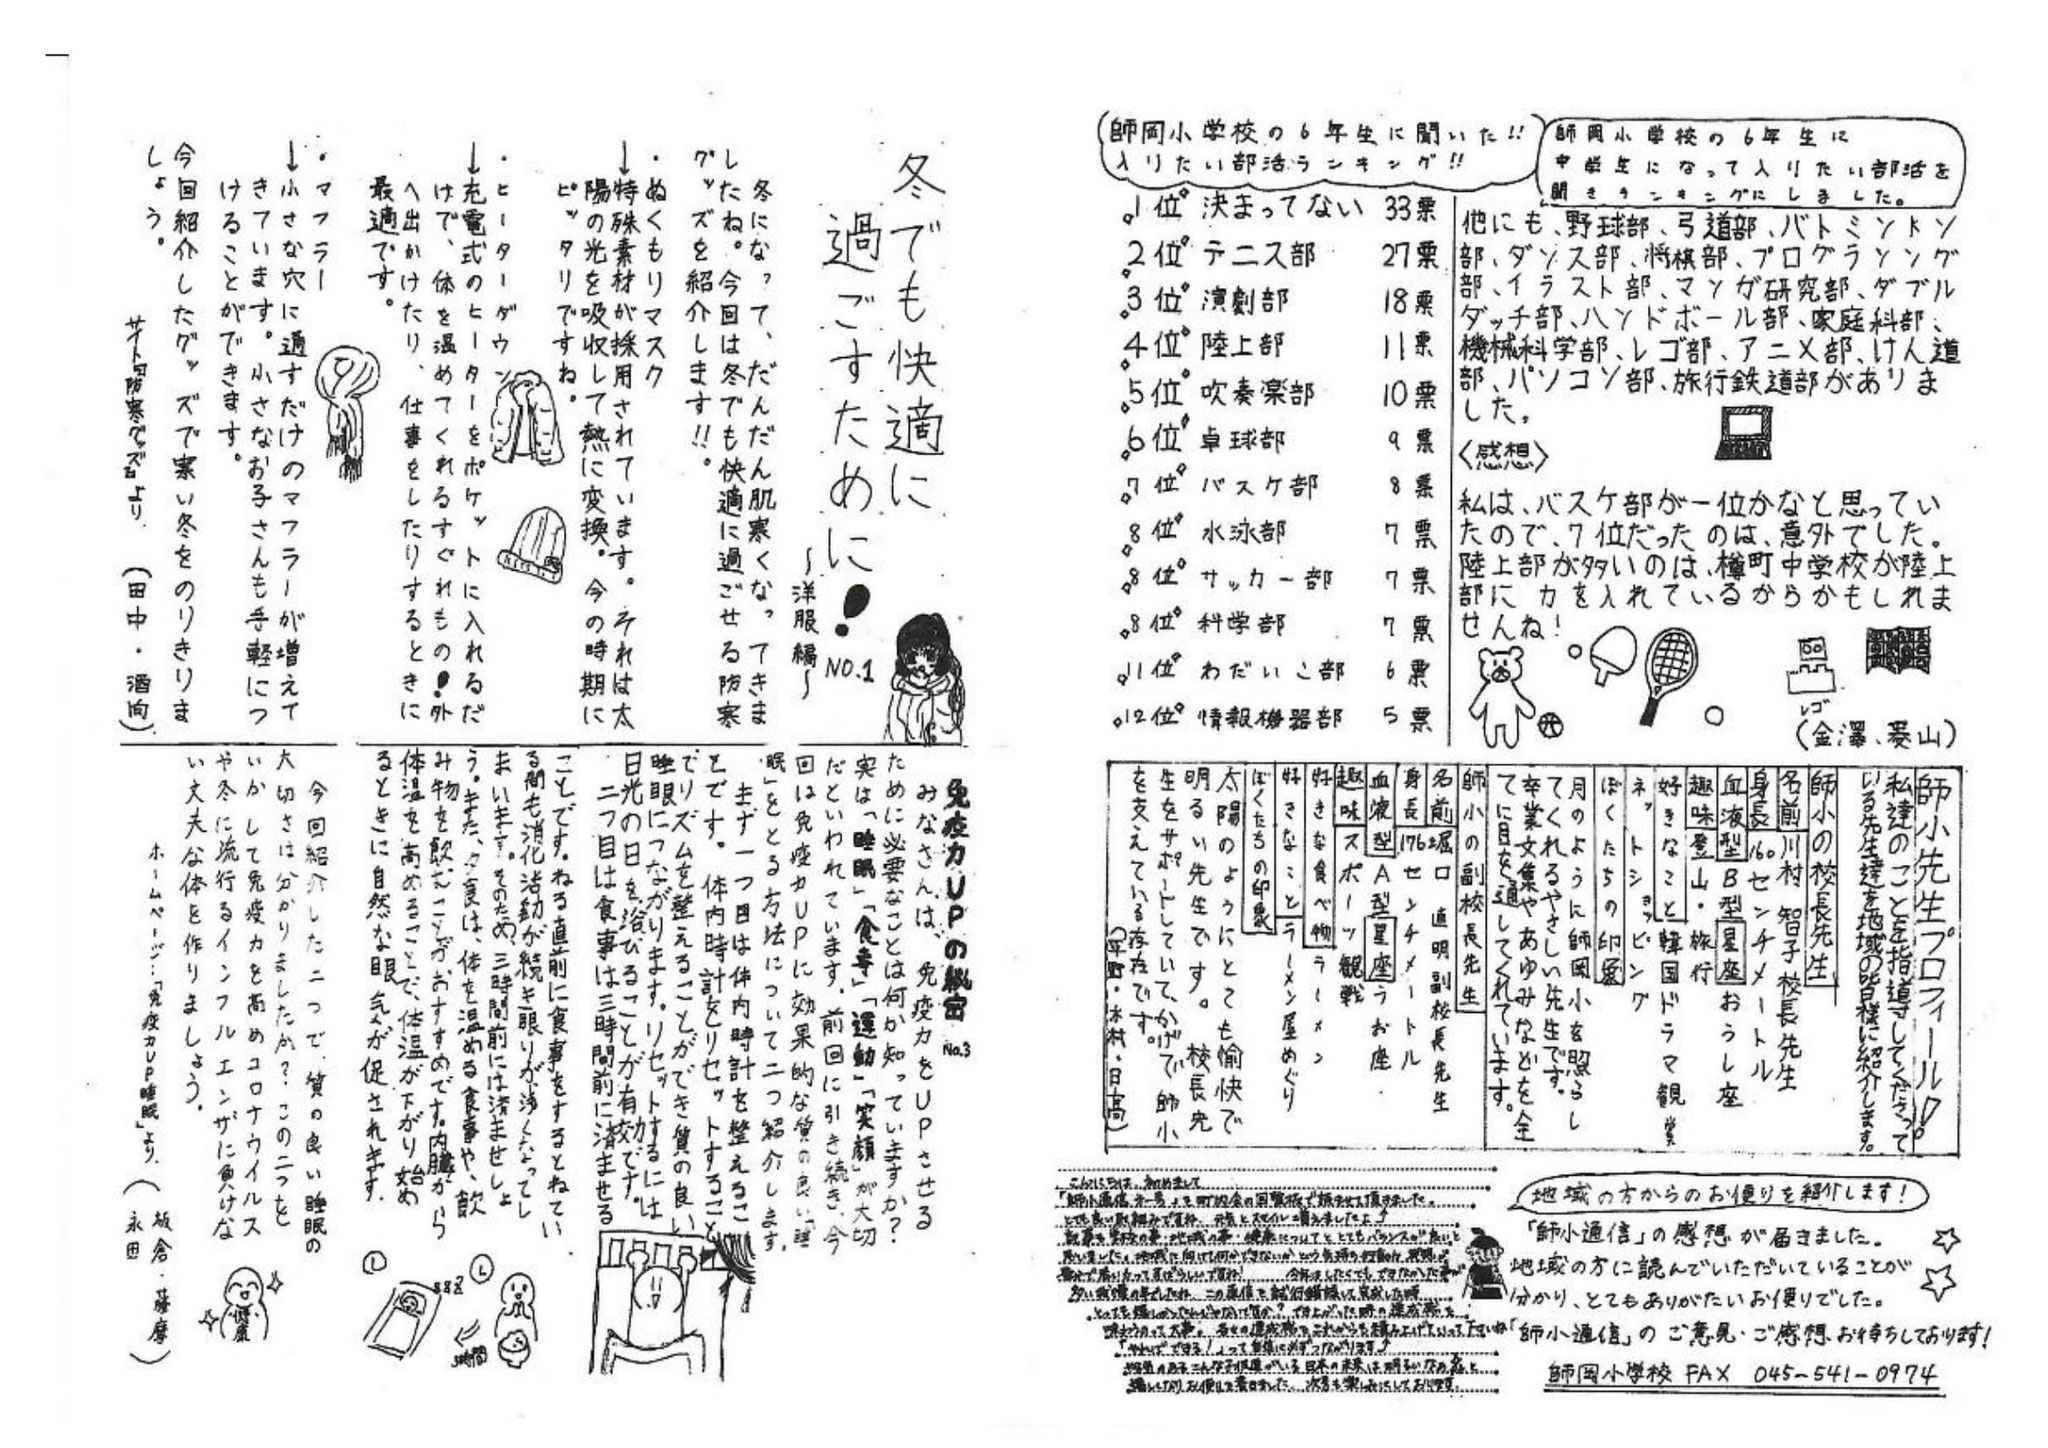 師岡小学校の6年生に聞いた!!
入りたい部活ランキング!!
師岡小学校の6年生に
中学生になって入りたい部活を
聞きランキングにしました。
1位 決まってない 33票
2位 テニス部 27票
3位 演劇部 18票
4位 陸上部 11票
5位 吹奏楽部 10票
6位 卓球部 9票
7位 バスケ部 8票
8位 水泳部 7票
8位 サッカー部 7票
8位 科学部 7票
11位 わだいこ部 6票
12位 情報機器部 5票
他にも、野球部、弓道部、バトミントン
部、ダンス部、将棋部、プログラソング
部、イラスト部、マンガ研究部、ダブル
ダッチ部、ハンドボール部、家庭科部、
機械科学部、レゴ部、アニメ部、けん道
部、パソコン部、旅行鉄道部がありま
した。
〈感想〉
私は、バスケ部が一位かなと思ってい
たので、7位だったのは、意外でした。
陸上部が多いのは、樽町中学校が陸上
部に力を入れているからかもしれま
せんね!
レゴ
(金澤、菱山)
師小先生プロフィール!
私達のことを指導してくださって
いる先生達を地域の皆様に紹介します。
師小の校長先生
名前 川村 智子校長先生
身長 160センチメートル
血液型 B型 星座 おうし座
趣味 登山・旅行
好きなこと 韓国ドラマ観賞
ネットショッピング
ぼくたちの印象
月のように師岡小を照らし
てくれるやさしい先生です。
卒業文集やあゆみなどを全
てに目を通してくれています。
師小の副校長先生
名前 堀口 直明副校長先生
身長 176センチメートル
血液型 A型 星座 うお座
趣味 スポーツ観戦
好きな食べ物 ラーメン
好きなこと ラーメン屋めぐり
ぼくたちの印象
太陽のようにとても愉快で
明るい先生です。校長先
生をサポートしていて、かげで師小
を支えている存在です。
(平野・木村・日高)
地域の方からのお便りを紹介します!
「師小通信」の感想が届きました。
地域の方に読んでいただいていることが
分かり、とてもありがたいお便りでした。
「師小通信」のご意見・ご感想お待ちしております!
師岡小学校 FAX 045-541-0974
こんにちは、初めまして
「師小通信 」を町内会の回覧板で読ませて頂きました。
冬でも快適に
過ごすために!
NO.1
~洋服編~
冬になって、だんだん肌寒くなってきま
したね。今回は冬でも快適に過ごせる防寒
グッズを紹介します!!。
・ぬくもりマスク
→特殊素材が採用されています。それは太
陽の光を吸収して熱に変換。今の時期に
ピッタリですね。
・ヒーターダウン
→充電式のヒーターをポケットに入れるだ
けで、体を温めてくれるすぐれもの!外
へ出かけたり、仕事をしたりするときに
最適です。
・マフラー
→小さな穴に通すだけのマフラーが増えて
きています。小さなお子さんも手軽につ
けることができます。
今回紹介したグッズで寒い冬をのりきりま
しょう。
サイト『防寒グッズ』より、
(田中・酒向)
免疫力UPの秘密 No.3
みなさんは、免疫力をUPさせる
ために必要なことは何か知っていますか?
実は「睡眠」「食事」「運動」「笑顔」が大切
だといわれています。前回に引き続き、今
回は免疫力UPに効果的な質の良い「睡
眠」をとる方法について二つ紹介します。
まず一つ目は体内時計を整えるこ
とです。体内時計をリセットすること
でリズムを整えることができ質の良い
睡眠につながります。リセットするには
日光の日を浴びることが有効です。
二つ目は食事は三時間前に済ませる
ことです。ねる直前に食事をするとねてい
る間も消化活動が続き眠りが浅くなってし
まいます。そのため、三時間前には済ませしょ
う。また、夕食は、体を温める食事や、飲
み物を飲むことがおすすめです。内臓から
体温を高めることで、体温が下がり始め
るときに自然な眠気が促されます。
今回紹介した二つで、質の良い睡眠の
大切さは分かりましたか?この二つを
いかして免疫力を高めコロナウイルス
や冬に流行るインフルエンザに負けな
い丈夫な体を作りましょう。
ホームページ:「免疫力UP睡眠」より、
(板倉・薩摩
永田)
3時間
健康